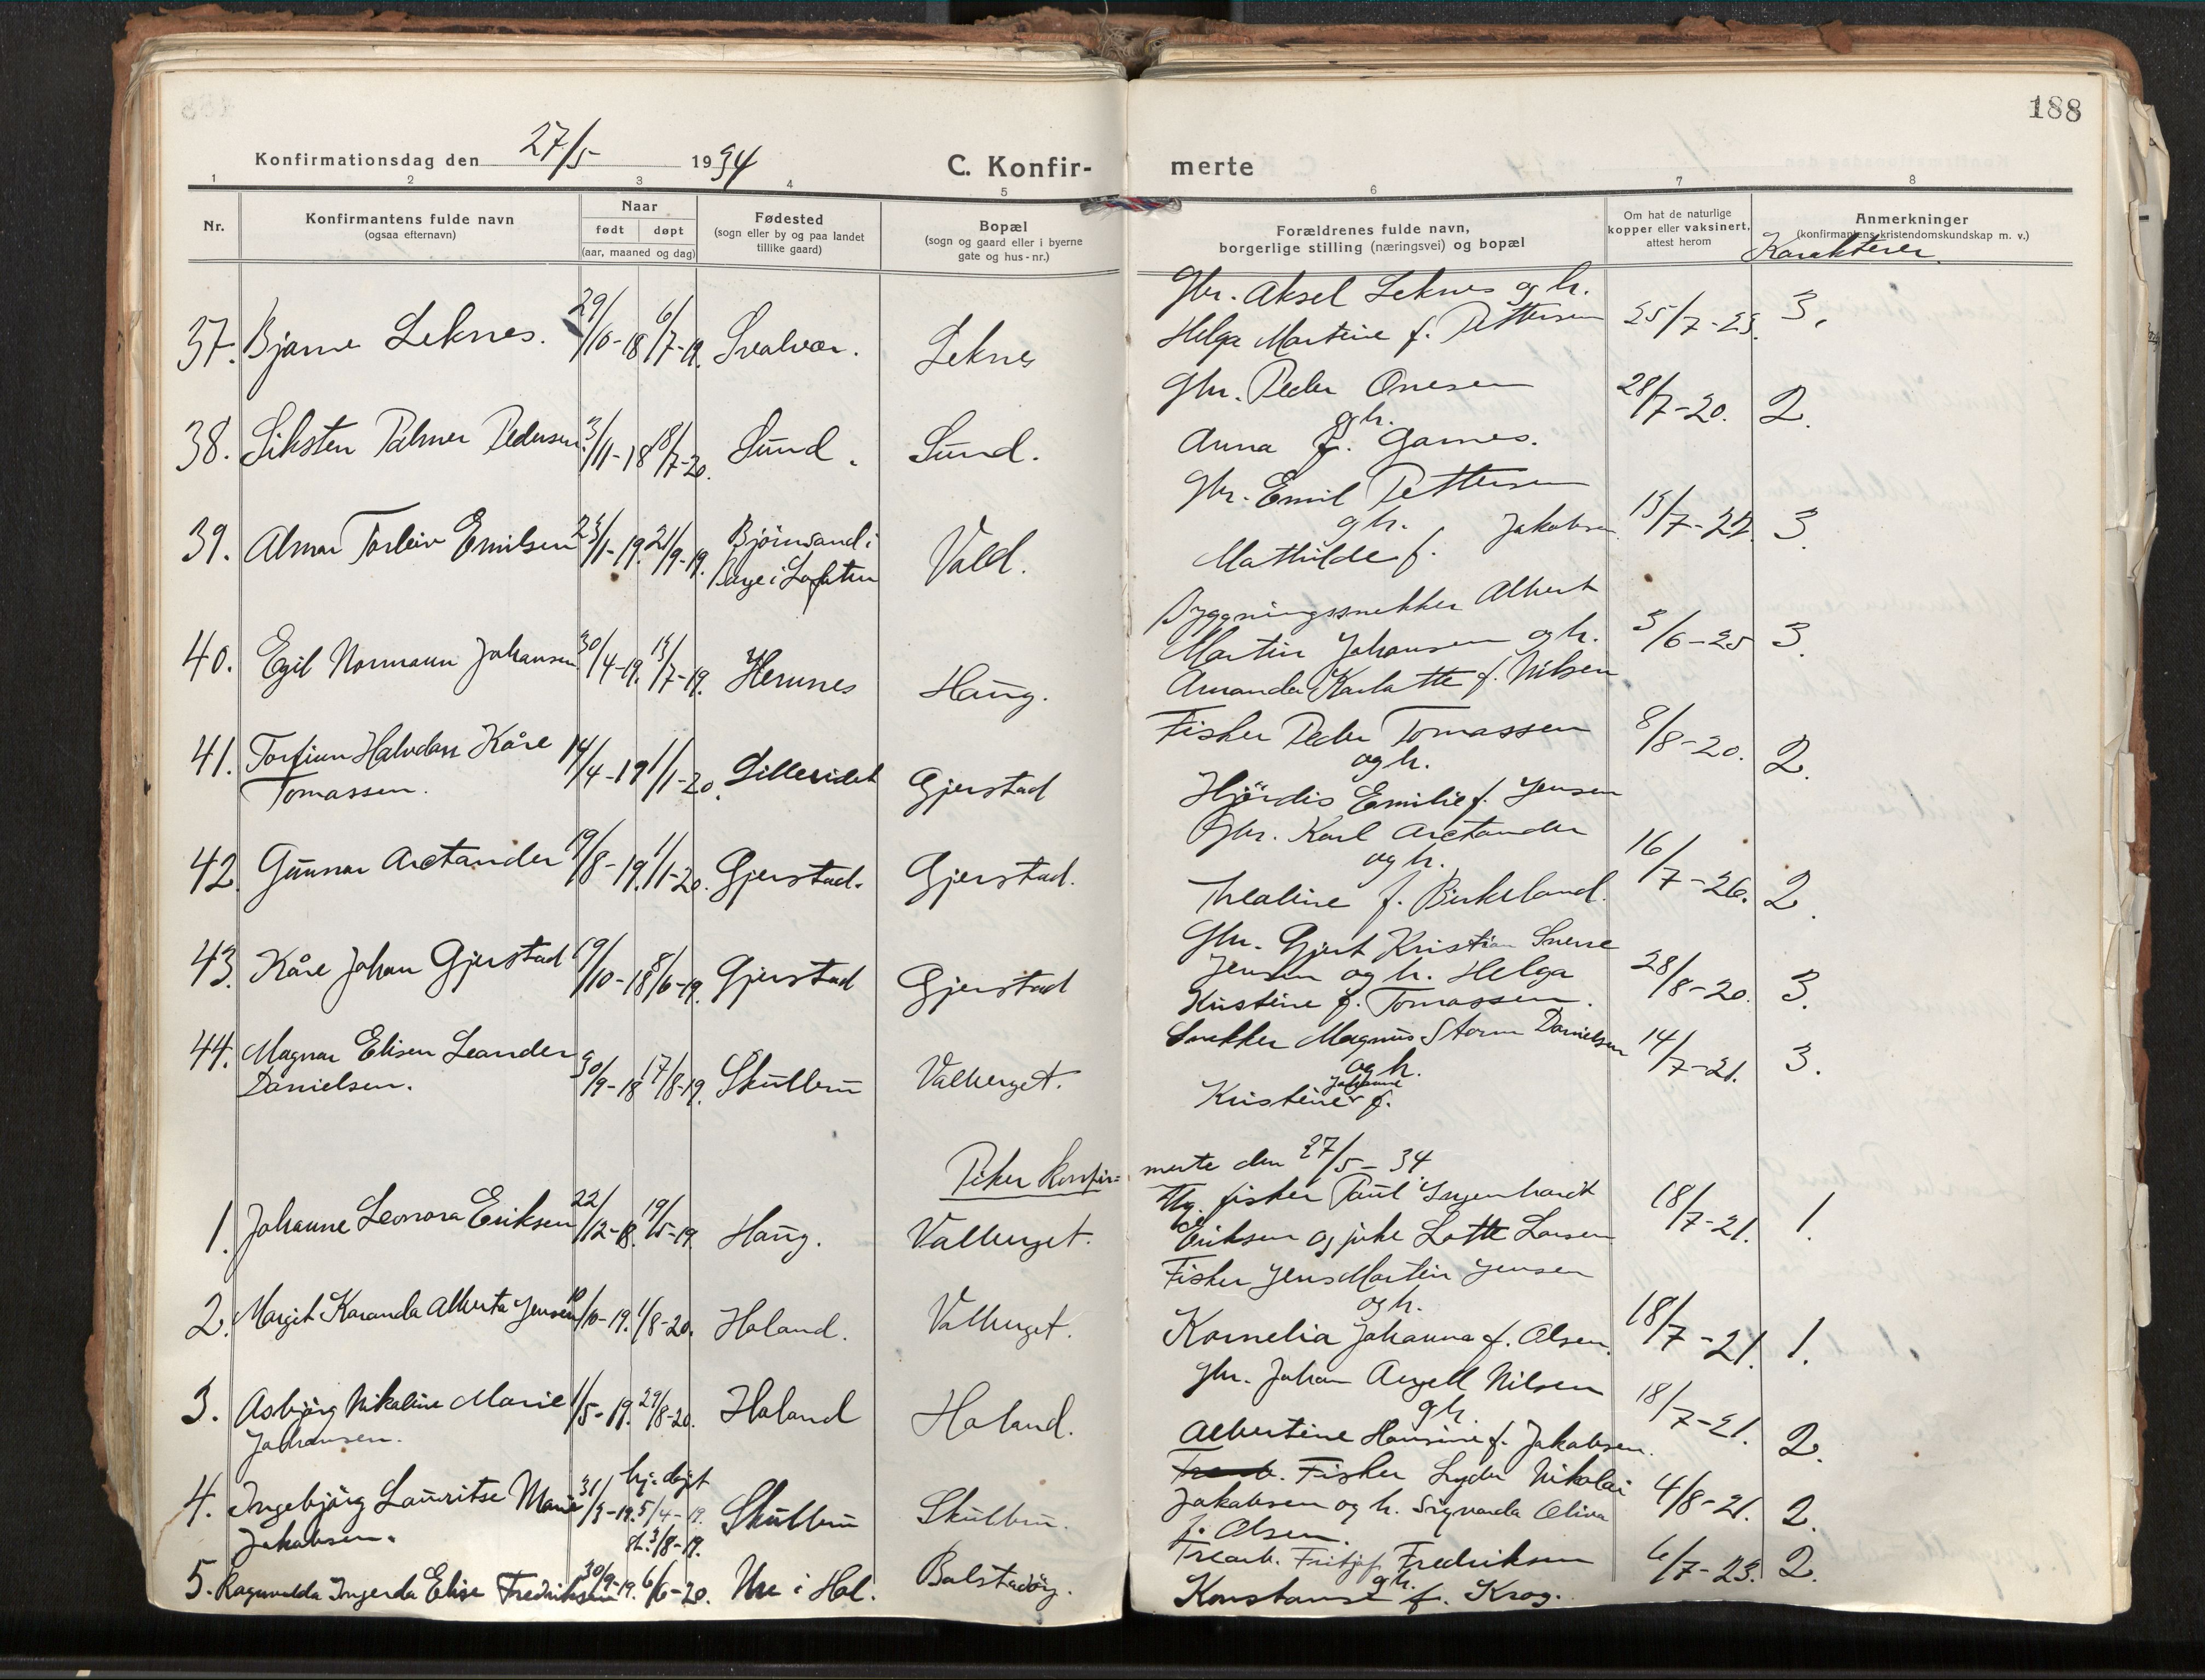 188
Konfirmationsdag den 27/5 1934
C. Konfir- merte
1 2 3 4 5 6 7 8
Nr.
Konfirmantens fulde navn
(ogsaa efternavn)
Naar
født døpt
(aar, maaned og dag)
Fødested
(sogn eller by og paa landet
tillike gaard)
Bopæl
(sogn og gaard eller i byerne
gate og hus-nr.)
Forældrenes fulde navn,
borgerlige stilling (næringsvei) og bopæl
Om hat de naturlige
kopper eller vaksinert,
attest herom
Anmerkninger
(konfirmantens kristendomskundskap m. v.)
Karakterer.
37. Bjarne Leknes. 29/10-18 6/7-19. Svolvær. Leknes
Gbr. Aksel Leknes og h.
Helga Martine f. Pettersen 25/7-23. 3.
38. Siksten Palmer Pedersen 3/11-18 18/7-20. Sund. Sund.
Gbr. Peder Onesen
og h.
Anna f. Games. 28/7-20. 2.
39. Almar Torleiv Emilsen 23/1-19. 21/9-19. Vald.
Bjørnsand i
Gbr. Emil Pettersen
og h.
Mathilde f. Jakobsen 15/7-22. 3.
40. Egil Normann Johansen 30/4-19. 13/7-19. Hemnes Haug.
Byggningssnekker Albert
Martin Johansen og h.
Amanda Karlotte f. Nilsen 3/6-25 3.
41. Torfinn Halvdan Kåre
Tomassen. 14/4-19 1/1-20. Lilleeidet Gjerstad
Fisker Peder Tomassen
og h.
Hjördis Emilie f. Jensen 8/8-20. 2.
42. Gunnar Arctander 19/8-19. 1/1-20. Gjerstad. Gjerstad.
Gbr. Karl Arctander
og h.
Thealine f. Birkeland. 16/7-26. 2.
43. Kåre Johan Gjerstad 19/10-18 8/6-19. Gjerstad Gjerstad
Gbr. Gjert Kristian Sverre
Jensen og h. Helga
Kristine f. Tomassen. 28/8-20. 3.
44. Magnar Elisen Leander
Danielsen. 30/9-18 17/8-19. Skullbru Valberget.
Snekker Magnus Storm Danielsen
og h.
Johanne
Kristine f. 14/7-21. 3.
Piker konfir= merte den 27/5-34
1. Johanne Leonora Eriksen 22/12-18. 19/5-19. Haug. Valberget.
Ug. fisker Paul Ingenhardt
Eriksen og pike Lotte Larsen 18/7-21. 1.
2. Margit Karanda Alberta Jensen 10/10-19. 1/8-20. Holand. Valberget.
Fisker Jens Martin Jensen
og h.
Kornelia Johanna f. Olsen. 18/7-21. 1.
3. Asbjørg Nikoline Marie
Johansen. 1/5-19. 29/8-20. Holand Holand.
Gbr. Johan Angell Nilsen
og h.
Albertine Hansine f. Jakobsen. 18/7-21. 2.
4. Ingebjörg Lauritse Marie
Jakobsen. 31/3-19. hj. døpt 5/4-19. st. 3/8-19. Skullbru Skullbru.
Fisker Lyder Nikolai
Jakobsen og h. Signarda Oliva
f. Olsen. 4/8-21. 2.
5. Ragnvalda Ingerda Elise Fredriksen 30/9-19. 6/6-20. Ure i Hol. Balstadøy.
Trearb. Fritjof Fredriksen
og h.
Konstanse f. Krog. 6/7-23. 2.